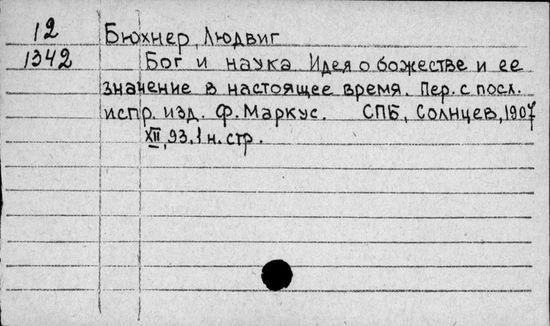 12 Бюхнер, Людвиг
1342 Бог и наука Идея о божестве и ее
значение в настоящее время. Пер. с посл.
испр. изд. Ф. Маркус. СПБ, Солнцев, 1907
XII, 93, 1 н. стр.